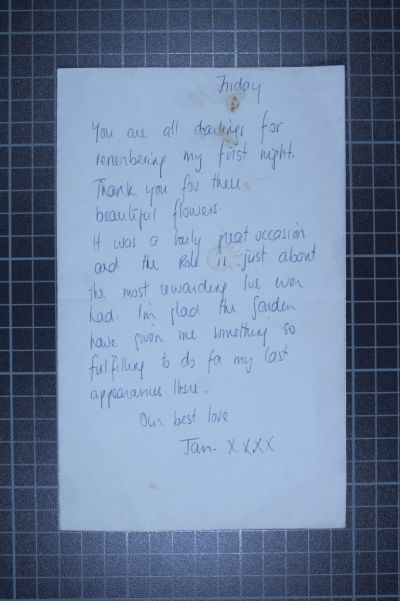 Friday
You are all darlings for
remembering my first night.
Thank you for these
beautiful flowers.
It was a truly great occasion
and the Role is just about
the most rewarding I've ever
had. I'm glad the Garden
have given me something so
fulfilling to do for my last
appearances there.
Our best love
Jan. XXXX